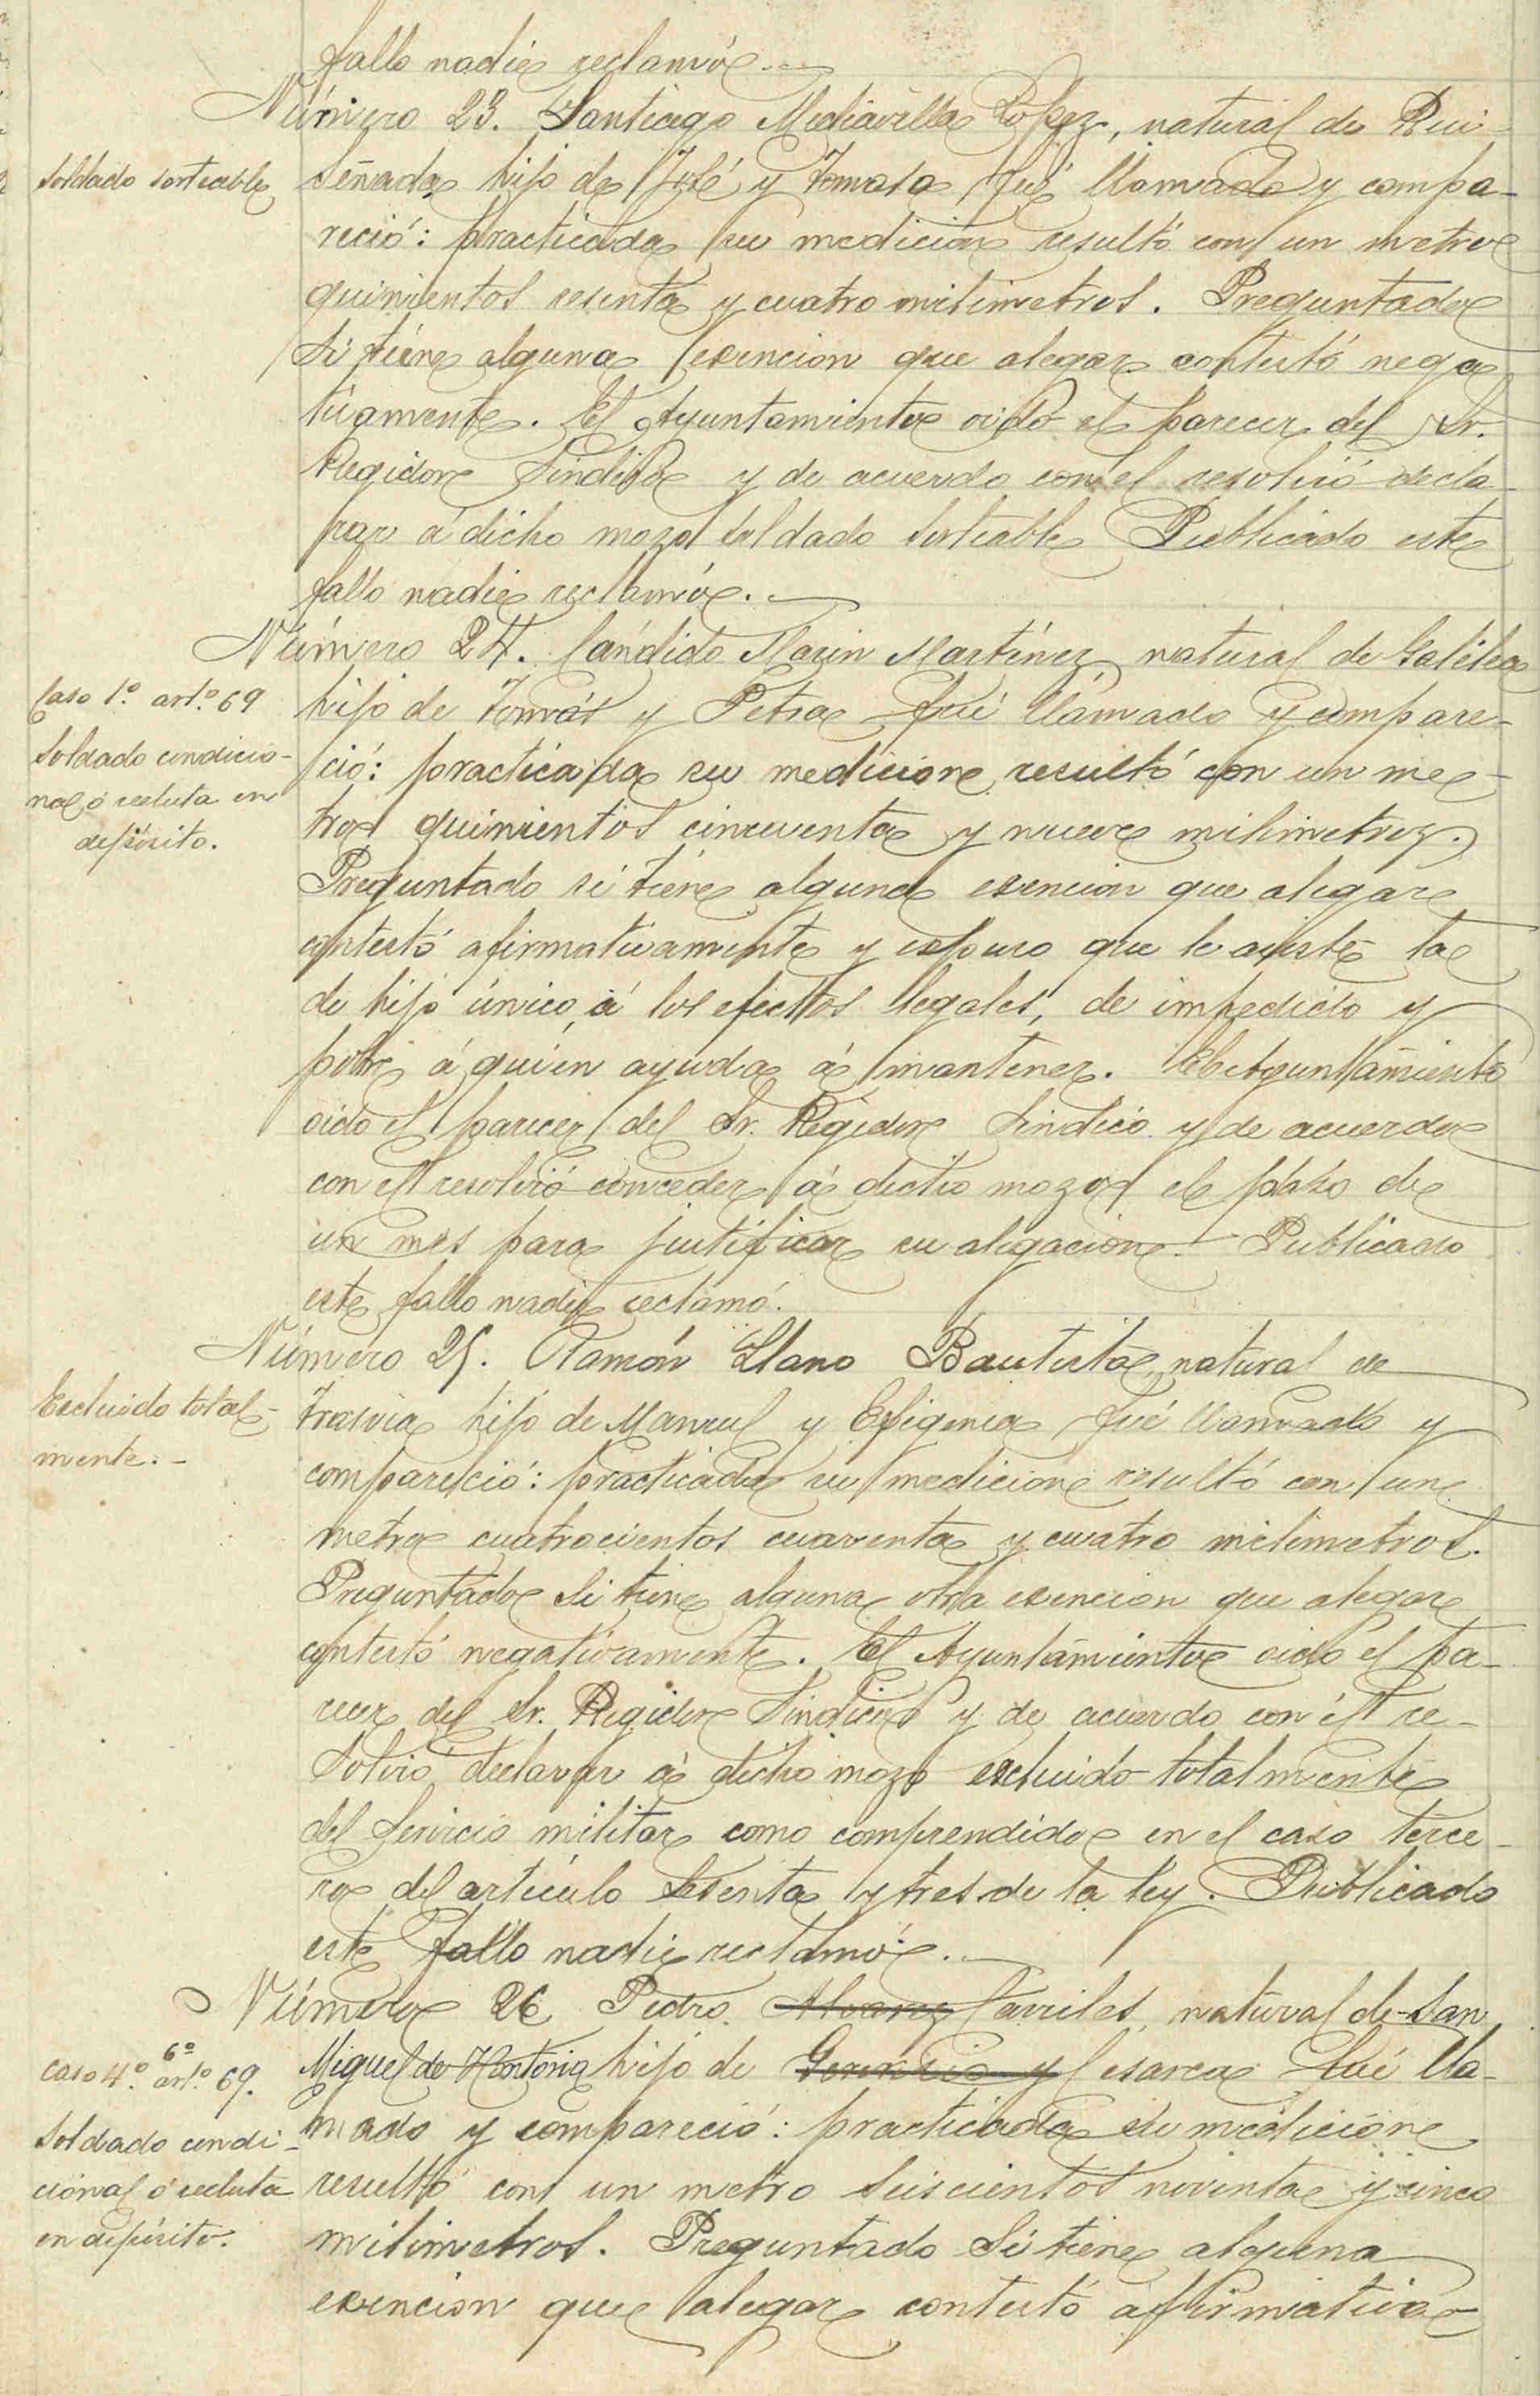 fallo nadie reclamó.
Número 23. Santiago Mediavilla López, natural de Rui-
soldado sorteable
señada hijo de José y Tomasa fué llamado y compa-
reció: practicada su medicion resultó con un metro
quinientos sesenta y cuatro milimetros. Preguntado
si tiene alguna exencion que alegar contestó nega
tivamente. El Ayuntamiento oido el parecer del Sr.
Regidor Sindico y de acuerdo con el resolvió decla-
rar á dicho mozo soldado sorteable Publicado este
fallo nadie reclamó.
Número 24. Cándido Marin Martínez natural de Galilea
Caso 1º. artº. 69
hijo de Tomás y Petra fué llamado y compare-
soldado condicio-
ció: practicada su medicion resultó con un me-
nal ó recluta en
tro quinientos cincuenta y nueve milimetros.
depósito.
Preguntado si tiene alguna exencion que alegar
contestó afirmativamente y espuso que le asiste la
de hijo único, á los efectos legales, de impedido y
pobre á quien ayuda á mantener. El Ayuntamiento
oido el parecer del Sr. Regidor Sindico y de acuerdo
con el resolvió conceder á dicho mozo el plazo de
un mes para justificar su alegacion. Publicado
este fallo nadie reclamó.
Número 25. Ramón Llano Bautista, natural de
Escluido total-
Trasvia hijo de Manuel y Efigenia fué llamado y
mente.-
compareció: practicada su medicion resultó con un
metro cuatrocientos cuarenta y cuatro milimetros.
Preguntado si tiene alguna otra exencion que alegar
contestó negativamente. El Ayuntamiento oido el pa-
recer del Sr. Regidor Sindico y de acuerdo con él re-
solvió declarar á dicho mozo escluido totalmente
del servicio militar como comprendido en el caso terce-
ro del artículo sesenta y tres de la ley. Publicado
este fallo nadie reclamó.
Número 26 Pedro Alvarez Carriles, natural de San
caso 4º. 6º artº. 69.
Miguel de Hontoria hijo de y Cesarea fué lla-
soldado condi-
mado y compareció: practicada su medicion
cional ó recluta
resultó con un metro seiscientos noventa y cinco
en depósito.
milimetros. Preguntado si tiene alguna
exencion que alegar contestó afirmativa